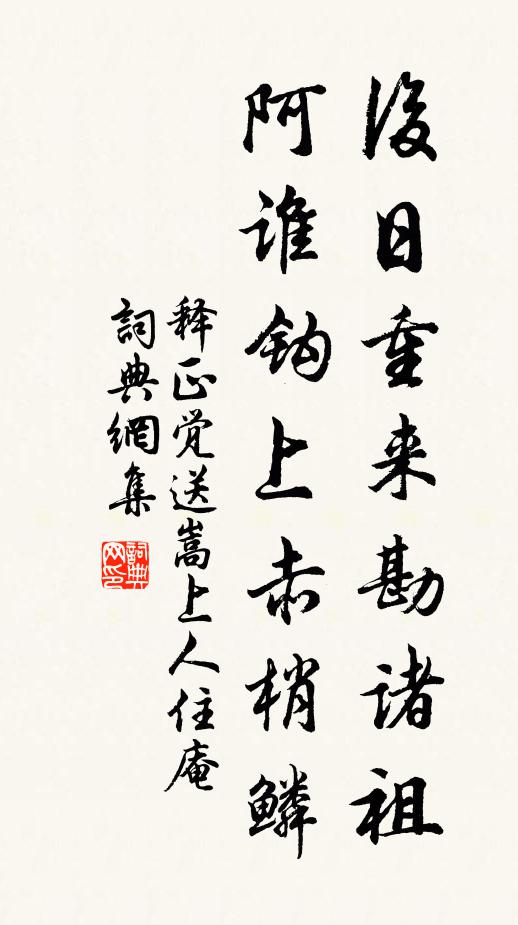 後日重来勘诸祖
阿谁鈎上赤梢鳞
释正觉送嵩上人住庵
詞典網集
詞典网印